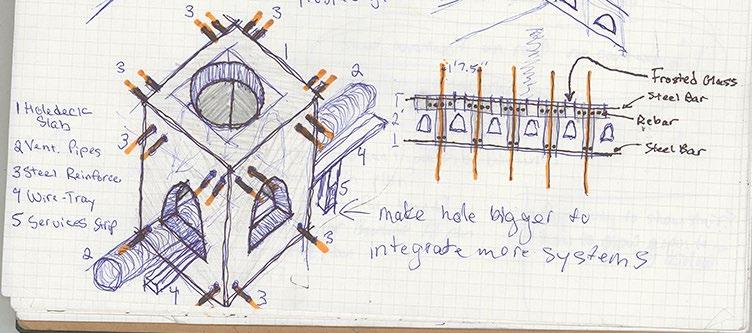 1 Holedeck
Slab
2 Vent. Pipes
3 Steel Reinforce
4 Wire-Tray
5 Services Strip
3
3
3
3
3
3
3
3
1
2
2
4
4
5
1'7.5"
2
1
Frosted Glass
Steel Bar
Rebar
Steel Bar
make hole bigger to
integrate more systems